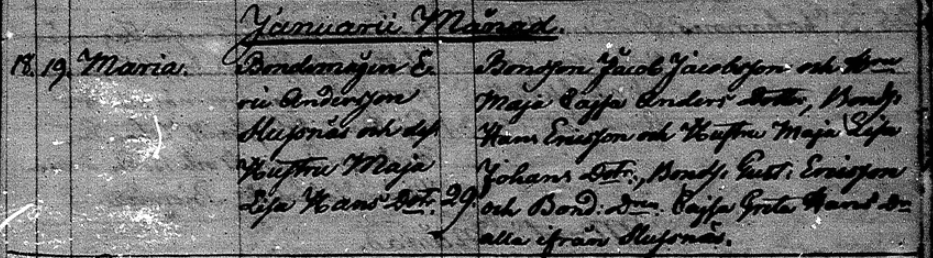 Januarii Månad.
18. 19. Maria.
Bondemågen E-
ric Andersson
Slussnäs och dess
Hustru Maja
Lisa Hans Dotr. 29.
Bondson Jacob Jacobsson och Hru
Maja Cajsa Anders Dotter, Bonds:
Hans Ericsson och Hustru Maja Lisa
Johans Dotr., Bonds: Gust: Ericsson
och Bond: Dren. Cajsa Greta Hans Dr
alla ifrån Slussnäs.